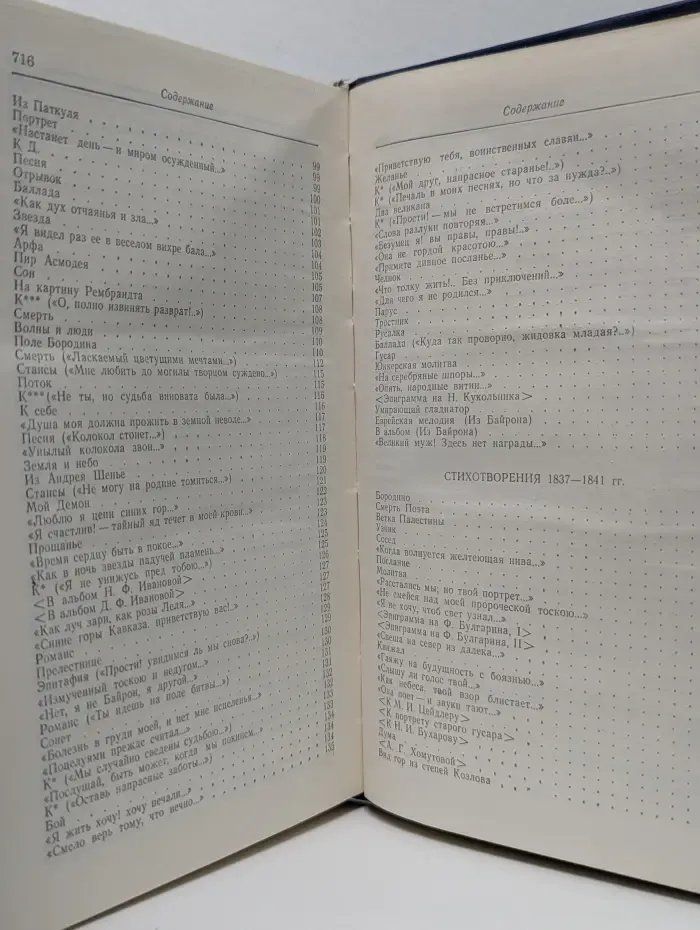 716
Содержание
Из Паткуля
Портрет
«Настанет день — и миром осужденный...» 99
К Д. 99
Песня 99
Отрывок 100
Баллада 101
«Как дух отчаянья и зла...» 101
Звезда 102
«Я видел раз ее в веселом вихре бала...» 103
Арфа 104
Пир Асмодея 104
Сон 105
На картину Рембрандта 107
К*** («О, полно извинять разврат!..») 108
Смерть 108
Волны и люди 109
Поле Бородина 110
Смерть («Ласкаемый цветущими мечтами...») 112
Стансы («Мне любить до могилы творцом суждено...») 115
Поток 115
К***(«Не ты, но судьба виновата была...») 116
К себе 116
«Душа моя должна прожить в земной неволе...» 117
Песня («Колокол стонет...») 117
«Унылый колокола звон...» 118
Земля и небо 119
Из Андрея Шенье 120
Стансы («Не могу на родине томиться...») 121
Мой Демон 122
«Люблю я цепи синих гор...» 123
«Я счастлив! — тайный яд течет в моей крови...» 124
Прощанье 124
«Время сердцу быть в покое...» 125
«Как в ночь звезды падучей пламень...» 126
К* («Я не унижусь пред тобою...») 127
<В альбом Н. Ф. Ивановой> 127
<В альбом Д. Ф. Ивановой> 128
«Как луч зари, как розы Леля...» 129
«Синие горы Кавказа, приветствую вас!..» 130
Романс 130
Прелестнице 131
Эпитафия («Прости! увидимся ль мы снова?..») 131
«Измученный тоскою и недугом...» 132
«Нет, я не Байрон, я другой...» 132
Романс («Ты идешь на поле битвы...») 133
Сонет 133
«Болезнь в груди моей, и нет мне исцеленья...» 134
«Поцелуями прежде считал...» 134
К* («Мы случайно сведены судьбою...») 135
«Послушай, быть может, когда мы покинем...»
К* («Оставь напрасные заботы...»)
Бой
«Я жить хочу! хочу печали...»
«Смело верь тому, что вечно...»
Содержание
«Приветствую тебя, воинственных славян...»
Желанье
К* («Мой друг, напрасное старанье!..»)
К* («Печаль в моих песнях, но что за нужда?..»)
Два великана
К* («Прости! — мы не встретимся боле...»)
«Слова разлуки повторяя...»
«Безумец я! вы правы, правы!..»
«Она не гордой красотою...»
«Примите дивное посланье...»
Челнок
«Что толку жить!.. Без приключений...»
«Для чего я не родился...»
Парус
Тростник
Русалка
Баллада («Куда так проворно, жидовка младая?..»)
Гусар
Юнкерская молитва
«На серебряные шпоры...»
«Опять, народные витии...»
<Эпиграмма на Н. Кукольника>
Умирающий гладиатор
Еврейская мелодия (Из Байрона)
В альбом (Из Байрона)
«Великий муж! Здесь нет награды...»
СТИХОТВОРЕНИЯ 1837—1841 гг.
Бородино
Смерть Поэта
Ветка Палестины
Узник
Сосед
«Когда волнуется желтеющая нива...»
Послание
Молитва
«Расстались мы; но твой портрет...»
«Не смейся над моей пророческой тоскою...»
«Я не хочу, чтоб свет узнал...»
<Эпиграмма на Ф. Булгарина, I>
<Эпиграмма на Ф. Булгарина, II>
«Спеша на север из далека...»
Кинжал
«Гляжу на будущность с боязнью...»
«Слышу ли голос твой...»
«Как небеса, твой взор блистает...»
«Она поет — и звуки тают...»
<К М. И. Цейдлеру>
<К портрету старого гусара>
<К Н. И. Бухарову>
Дума
<А. Г. Хомутовой>
Вид гор из степей Козлова